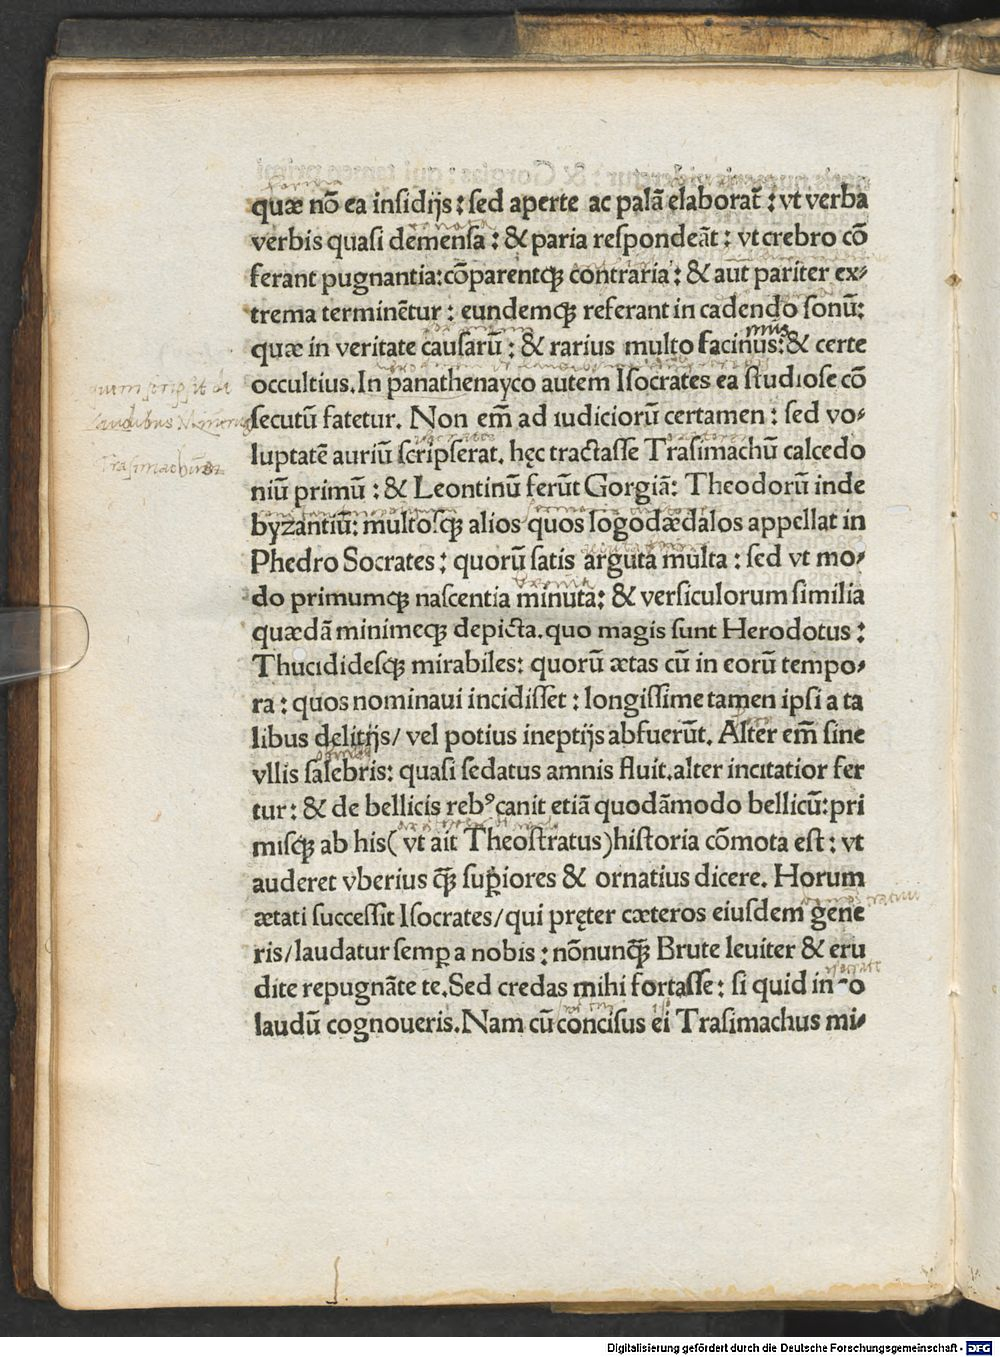 quæ nō ea insidijs : sed aperte ac palā elaborāt : vt verba
verbis quasi demensa : & paria respondeāt : vt crebro cō
ferant pugnantia: cōparentq̢ contraria : & aut pariter ex-
trema terminētur : eundemq̢ referant in cadendo sonū:
quæ in veritate causarū : & rarius multo facinus: & certe
mus
occultius. In panathenayco autem Isocrates ea studiose cō
quem scripsit de
laudibus
secutū fatetur. Non em̄ ad iudiciorū certamen : sed vo-
luptatē auriū scripserat. hęc tractasse Trasimachū calcedo
Trasimachus
niū primū : & Leontinū ferūt Gorgiā: Theodorū inde
byzantiū: multosq̢ alios quos logodædalos appellat in
Phedro Socrates : quorū satis arguta multa : sed vt mo-
do primumq̢ nascentia minuta: & versiculorum similia
quædā minimeq̢ depicta. quo magis sunt Herodotus :
Thucididesq̢ mirabiles: quorū ætas cū in eorū tempo-
ra : quos nominaui incidisset : longissime tamen ipsi a ta
libus delitijs/ vel potius ineptijs abfuerūt. Alter em̄ sine
vllis salebris: quasi sedatus amnis fluit. alter incitatior fer
tur : & de bellicis rebꝰ canit etiā quodāmodo bellicū: pri
misq̢ ab his( vt ait Theostratus) historia cōmota est : vt
auderet vberius q̄ꝫ suꝑiores & ornatius dicere. Horum
ætati successit Isocrates/ qui pręter cæteros eiusdem gene
ris/ laudatur semꝑ a nobis : nōnunq̄ꝫ Brute leuiter & eru
dite repugnāte te. Sed credas mihi fortasse : si quid in -o
laudū cognoueris. Nam cū concisus ei Trasimachus mi-
Digitalisierung gefördert durch die Deutsche Forschungsgemeinschaft - DFG